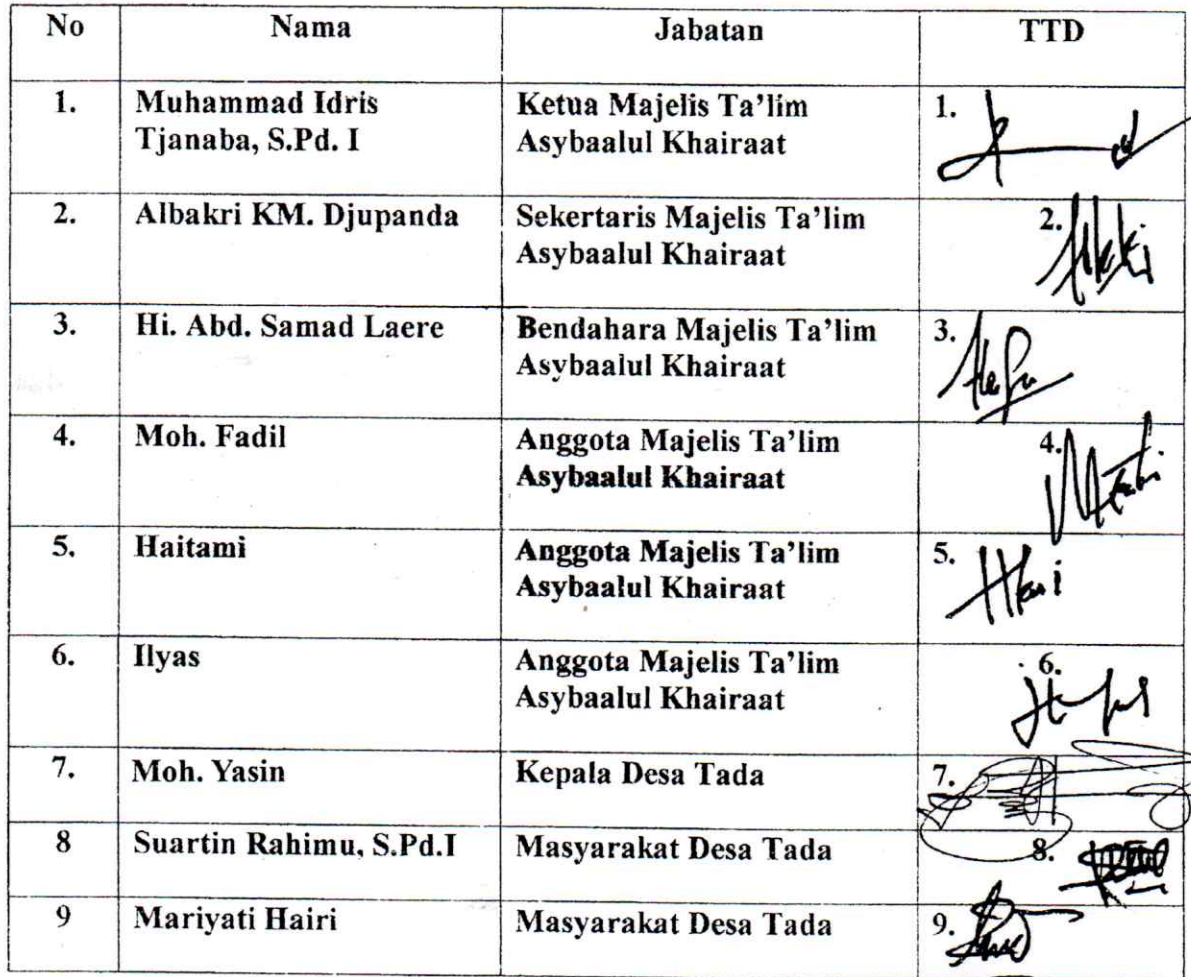 No Nama Jabatan TTD
1. Muhammad Idris Ketua Majelis Ta'lim 1.
Tjanaba, S.Pd. I Asybaalul Khairaat
2. Albakri KM. Djupanda Sekertaris Majelis Ta'lim 2.
Asybaalul Khairaat
3. Hi. Abd. Samad Laere Bendahara Majelis Ta'lim 3.
Asybaalul Khairaat
4. Moh. Fadil Anggota Majelis Ta'lim 4.
Asybaalul Khairaat
5. Haitami Anggota Majelis Ta'lim 5.
Asybaalul Khairaat
6. Ilyas Anggota Majelis Ta'lim 6.
Asybaalul Khairaat
7. Moh. Yasin Kepala Desa Tada 7.
8 Suartin Rahimu, S.Pd.I Masyarakat Desa Tada 8.
9 Mariyati Hairi Masyarakat Desa Tada 9.